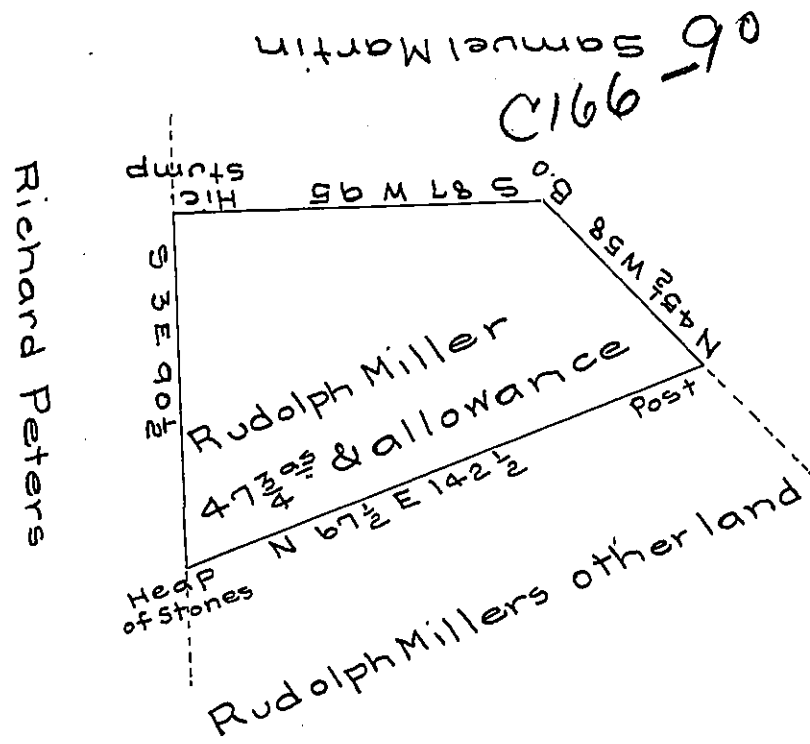 Samuel Martin
C166-90
Hic.
Stump
S 87 W 95
B.O.
N 45½ W 58
Richard Peters
S 3 E 90½
Rudolph Miller
47¾ as & allowance
Post
N 67½ E 142½
Heap
of Stones
Rudolph Millers other land